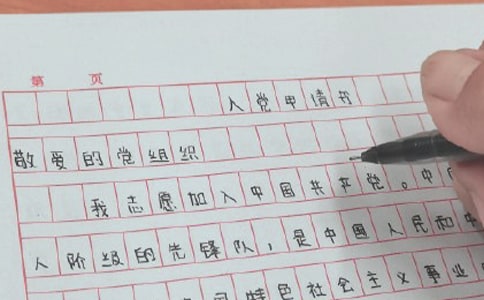 第 页
入党申请书
敬爱的党组织
我志愿加入中国共产党。中
人阶级的先锋队,是中国人民和中
特色社会主义事业